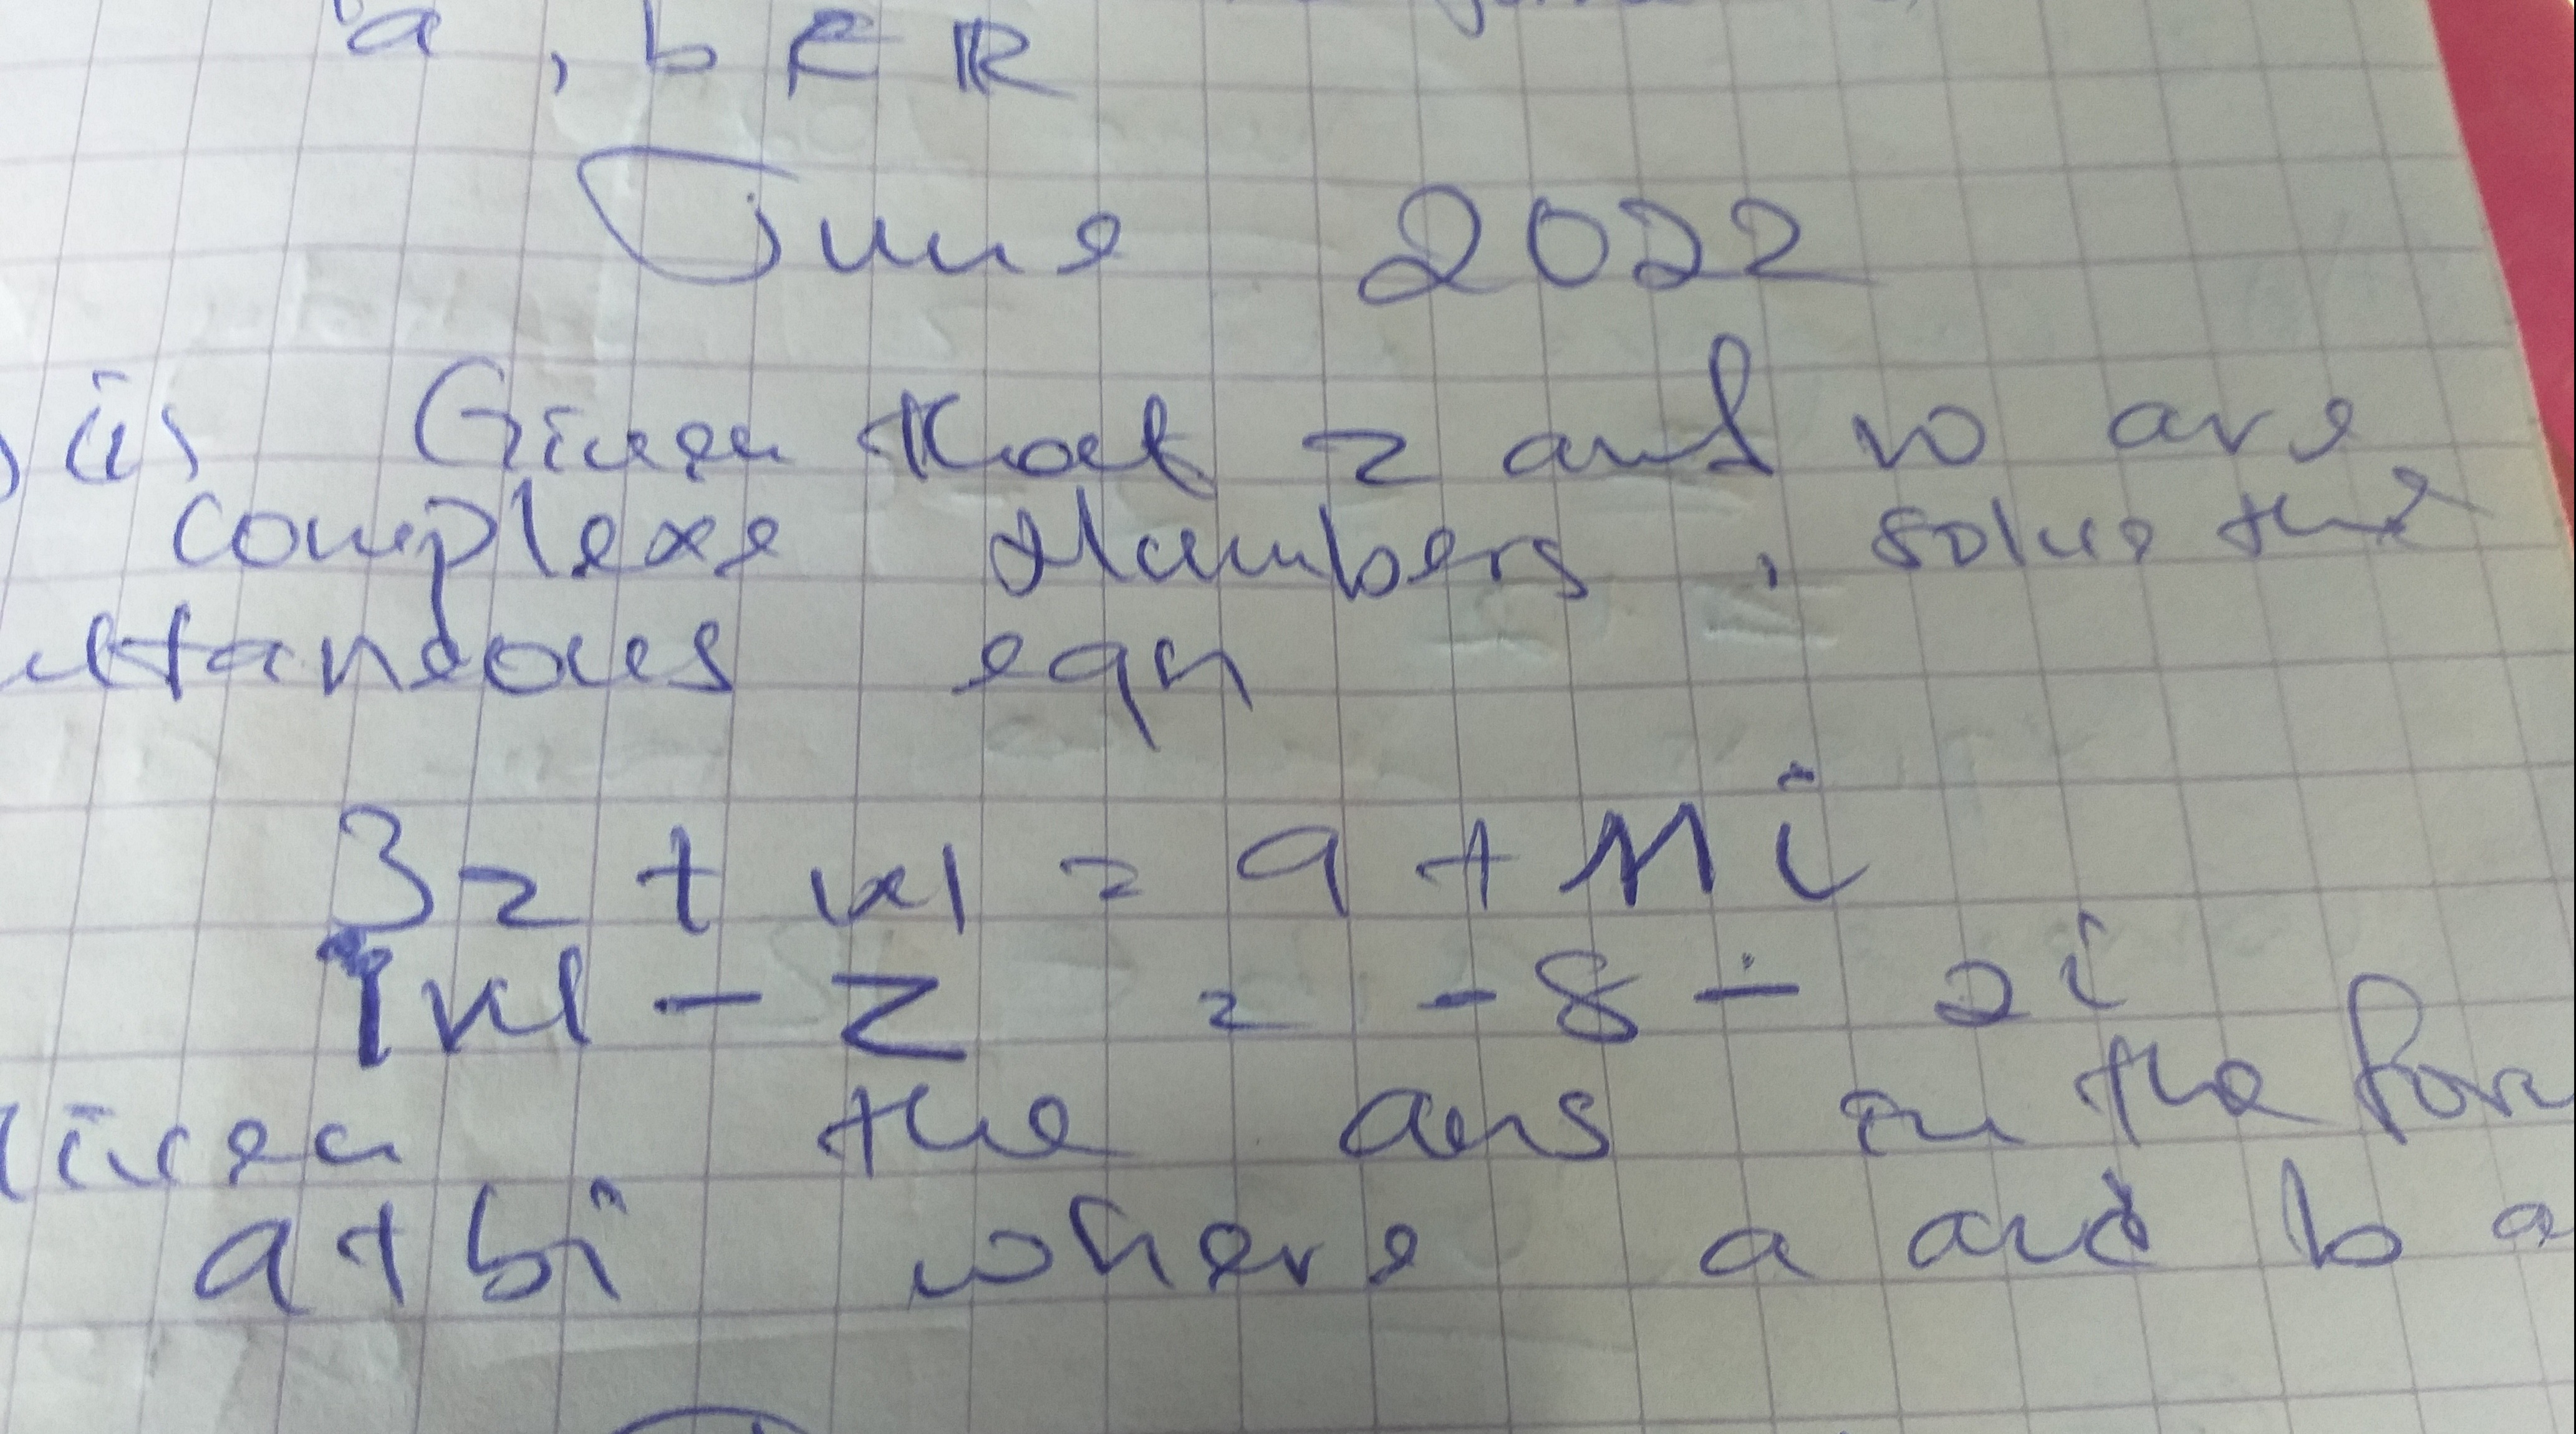 a, b ∈ ℝ
June 2022
ii) Given that z and w are
complexe Numbers, solve the
ultaneous eqn
3z + w = 9 + 11i
iw - z = -8 - 2i
Given the ans in the form
a + bi where a and b a